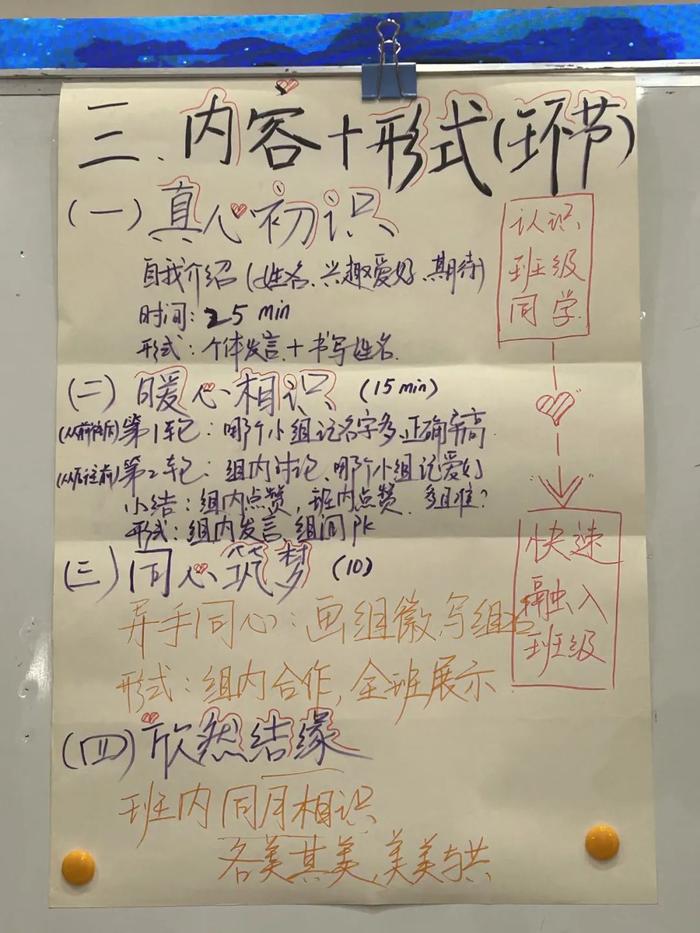 三、内容+形式(环节)
(一)真心初识
自我介绍(姓名、兴趣爱好、期待)
时间:25min
形式:个体发言+书写姓名.
(二)暖心相识 (15min)
(从前往后)第1轮:哪个小组记名字多,正确率高.
(从后往前)第2轮:组内讨论、哪个小组记爱好
小结:组内点赞,班内点赞、多且准?
形式:组内发言,组间Pk
(三)同心筑梦 (10)
异手同心:画组徽写组名
形式:组内合作,全班展示
(四)欣然结缘
班内同月相识
各美其美,美美与共
认识
班级
同学
快速
融入
班级